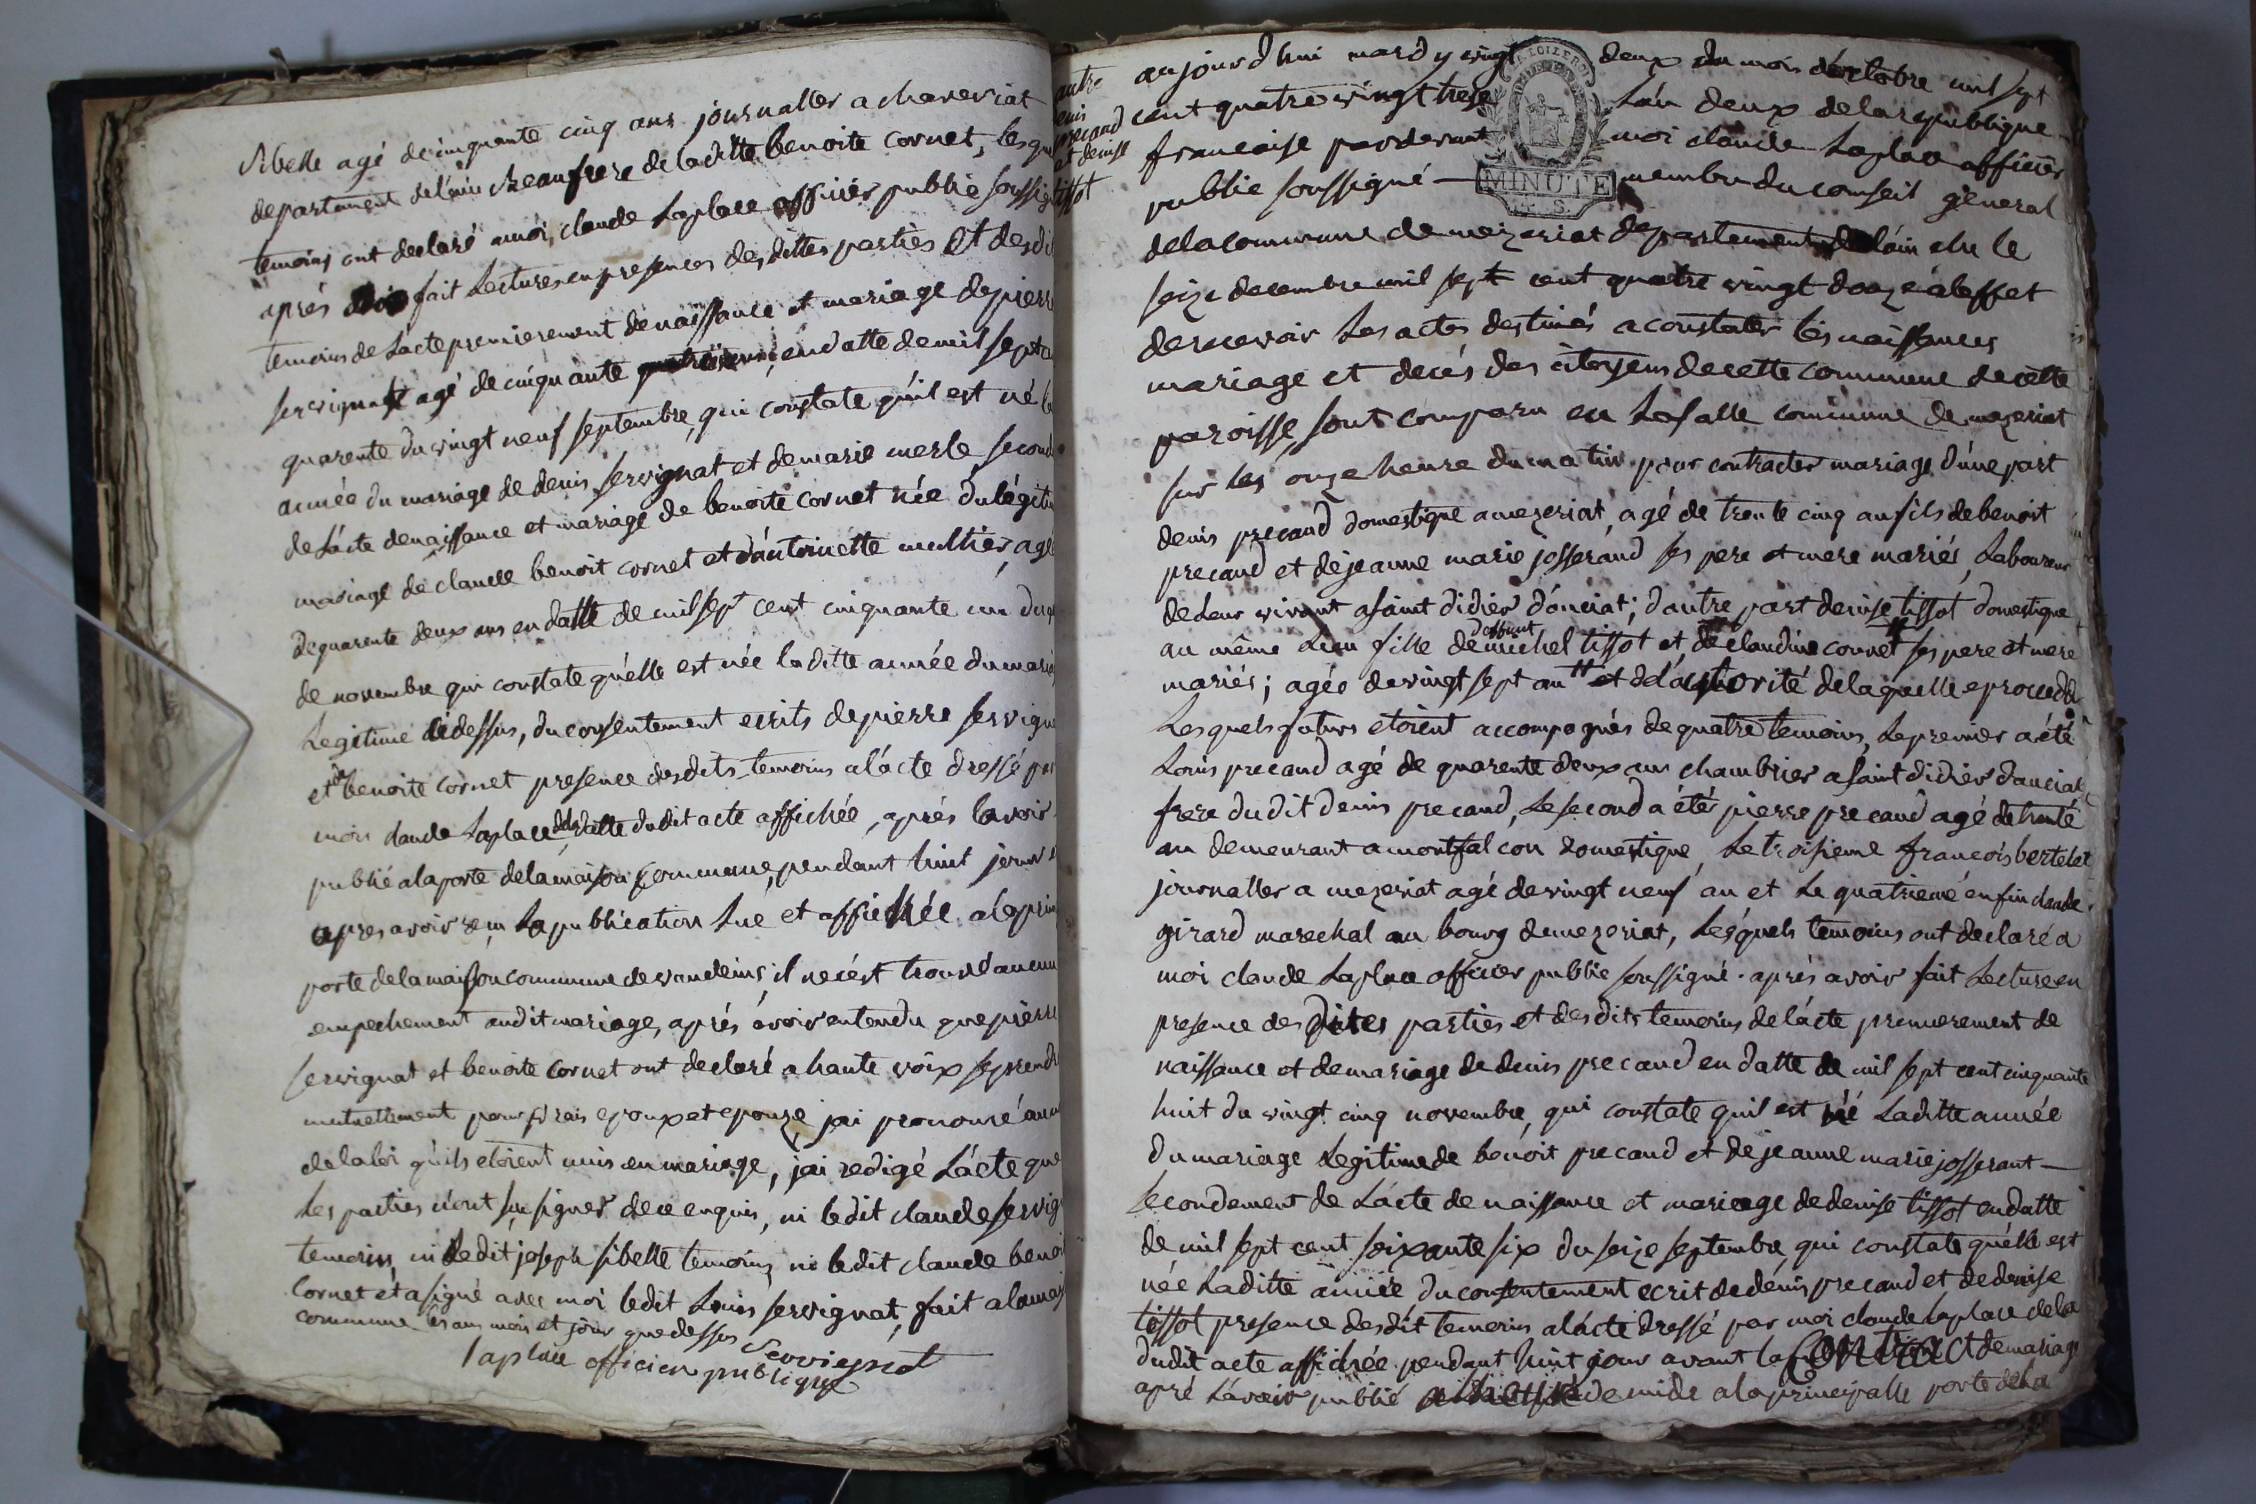 Sibelle agé de cinquante cinq ans journallier a chaveriat
departement de l'ain beaufrere de laditte benoite cornet, lesqu
temoins ont declaré a moi, claude Laplace officier public soussig
après fait Lecture en presences desdittes parties et desdit
temoins de Lacte premierement de naissance et mariage de pierre
servignat agé de cinquante en datte de mil sept c
quarente du vingt neuf septembre, qui constate qu'il est né la
année du mariage de denis servignat et de marie merle, second
de Lácte de naissance et mariage de benoite cornet née du légiti
mariage de claude benoit cornet et dántoinette multier, agé
de quarente deux ans en datte de mil sept cent cinquante un du
de novembre qui constate quélle est née laditte année du maria
Legitime cidessus, du consentement ecrits de pierre servigna
et de benoite cornet presence desdits temoins a lácte dressé par
moi claude Laplace datte dudit acte affichée, aprés lavoir
publié a la porte de la maison commune, pendant huit jours
apres avoir reçu La publication Lue et affichée a la prin
porte de la maison commune de vandeins, il ne cést trouvé aucun
empechement audit mariage, aprés ávoir entendu que pierre
servignat et benoite cornet ont declaré a haute voix se prendre
mutuellement pour epoux et epouze, jai prononcé au n
de la loi qu'ils etoient unis en mariage, jai redigé Lácte que
Les parties n'ont su signer de ce enquis, ni ledit claude servig
temoins, ni Ledit joseph sibelle temoins, ni ledit claude benoi
cornet et a signé avec moi ledit Louis servignat, fait a la mais
commune les ans mois et jour que dessus Servignat
laplace officier publique
autre
denis
precaud
et denise
tissot
aujourdhui mardy vingt deux du mois doctobre mil sept
cent quatre vingt treze Lán deux de la republique
francaise pardevant moi claude Laplace officier
public soussigné — membre du conseil géneral
MINUTE
de la commune de mezeriat departement de láin elu le
seize decembre mil sept cent quatre vingt douze a leffet
de recevoir Les actes destinés a constater les naissances
mariage et decés des citoyens de cette commune de cette
paroisse, sont comparu en La salle commune de mezeriat
sur les onze heure du matin pour contracter mariage dúne part
denis precaud domestique a mezeriat, agé de trente cinq an fils de benoit
precaud et de jeanne marie josserand ses pere et mere mariés, Laboureur
de leur vivant a saint didier dónciat; dautre part denise tissot domestique
au même Lieu fille de deffunt michel tissot et de claudine cornet ses pere et mere
mariés; agée de vingt sept an et de láutorité de laquelle e procede
Lesquels futurs etoient accompagnés de quatre temoins, Le premier a été
Louis precaud agé de quarente deux ans chambrier a saint didier dauciat
frere dudit denis precaud, Le second a été pierre precaud agé de trente
an demeurant a montfalcon domestique, Le troisieme francois bertelet
journallier a mezeriat agé de vingt neuf an et Le quatrieme énfin claude
girard marechal au bourg de mezeriat, Lesquels temoins ont declaré a
moi claude Laplace officier public soussigné. aprés avoir fait Lecture en
presence des dites parties et desdits temoins de lácte premierement de
naissance et de mariage de denis precaud en datte de mil sept cent cinquante
huit du vingt cinq novembre, qui constate quil est né Laditte année
du mariage Legitime de benoit precaud et de jeanne marie josserant —
secondement de Lácte de naissance et mariage de denise tissot en datte
de mil sept cent soixante six du seize septembre, qui constate quélle est
née Laditte année du consentement ecrit de dénis precaud et de denise
tissot presence desdit temoins a lácte dressé par moi claude Laplace de la
dudit acte affichée pendant huit jour avant la contract de mariage
apré Lávoir publié de midi a la principalle porte de la